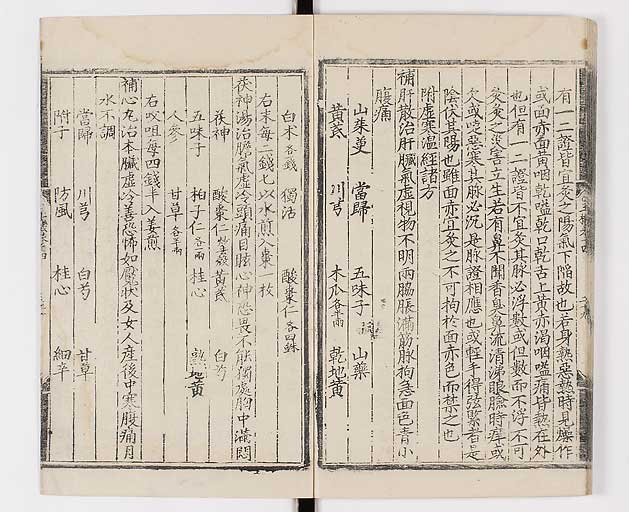 有一二證皆宜灸之陽氣下陷故也若身熱惡熱時見燥作
或面赤面黃咽乾嗌乾口乾舌上黃赤渴咽嗌痛皆熱在外
也但有一二證皆不宜灸其脉必浮數或但數而不浮不可
灸灸之灾害立生若有鼻不聞香臭鼻流清涕眼瞼時痒或
欠或嚏惡寒其脉必沉是脉證相應也或輕手得弦緊者是
陰伏其陽也雖面赤宜灸之不可拘於面赤色而禁之也
附虛寒溫經諸方
補肝散治肝臟氣虛視物不明兩脇脹滿筋脉拘急面色青小
腹痛
山茱萸 當歸 五味子 山藥
黃芪 川芎 木瓜各半兩 乾地黃
白朮 獨活 酸棗仁各四銖
右末每二錢匕以水煎入棗一枚
茯神湯治膽氣虛冷頭痛目眩心神恐畏不能獨處胸中滿悶
茯神 酸棗仁 黃芪 白芍
五味子 柏子仁 桂心 熟地黃
人參 甘草各半兩
右㕮咀每四錢半入姜煎
補心丸治本臟虛冷善恐怖如魘狀及女人產後中寒腹痛月
水不調
當歸 川芎 白芍 甘草
附子 防風 桂心 細辛